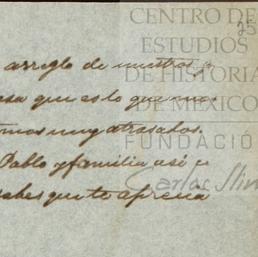 CENTRO DE
ESTUDIOS
DE HISTORIA
DE MEXICO
FUNDACIÓ
Carlos Slim
25
arreglo de nuestros
que es lo que
muy atrasados.
Pablo y familia así
sabes que te aprecia